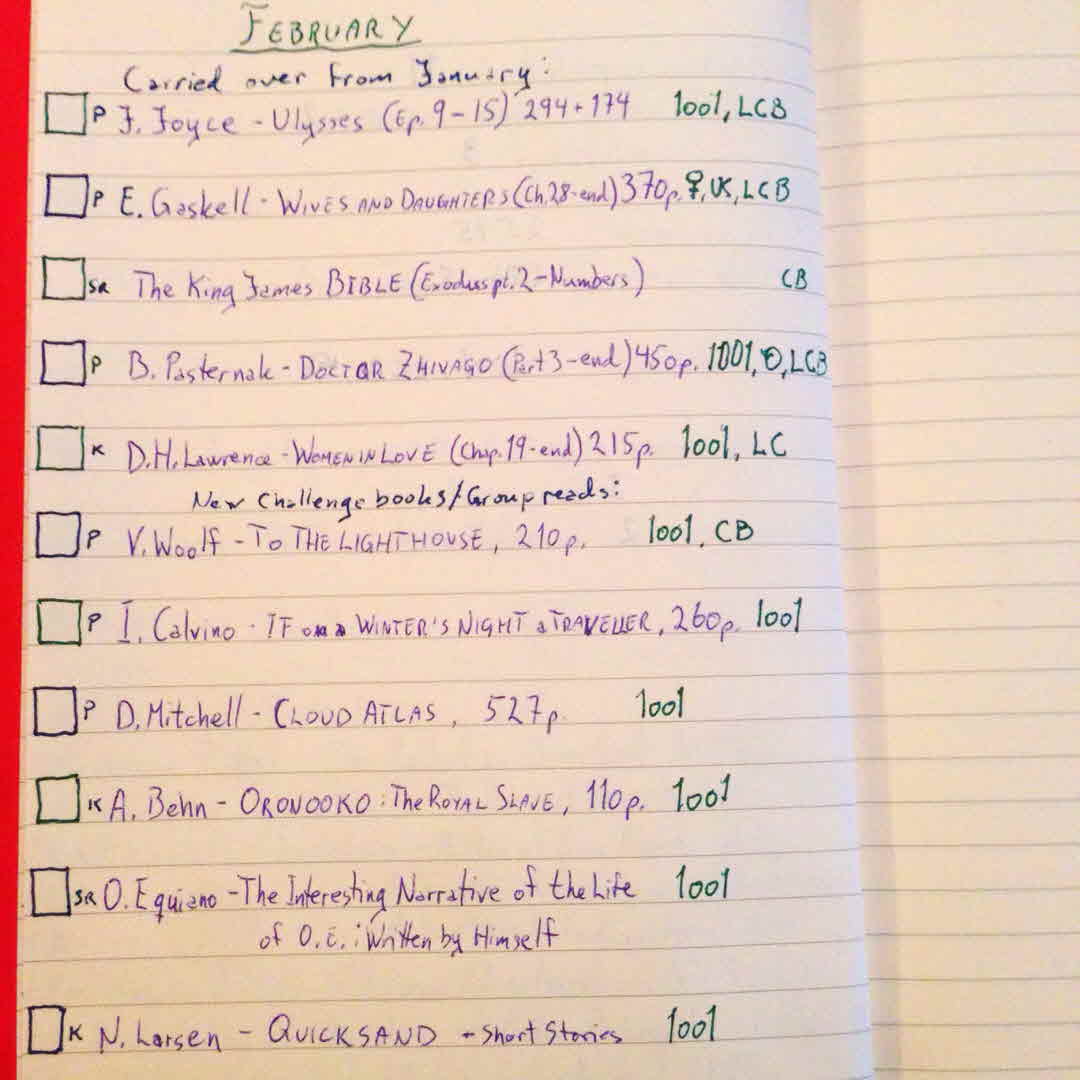 FEBRUARY
Carried over from January:
P J. Joyce - Ulysses (Ep. 9-15) 294+174 1001, LCB
P E. Gaskell - WIVES AND DAUGHTERS (Ch.28-end) 370p. ♀, UK, LCB
SR The King James BIBLE (Exodus pt. 2-Numbers) CB
P B. Pasternak - DOCTOR ZHIVAGO (Part 3-end) 450p. 1001, LCB
K D.H. Lawrence - WOMEN IN LOVE (Chap. 19-end) 215p. 1001, LC
New Challenge books/Group reads:
P V. Woolf - TO THE LIGHTHOUSE, 210p. 1001, CB
P I. Calvino - IF on a WINTER'S NIGHT a TRAVELLER, 260p. 1001
P D. Mitchell - CLOUD ATLAS, 527p. 1001
K A. Behn - ORONOOKO: The ROYAL SLAVE, 110p. 1001
SR O. Equiano - The Interesting Narrative of the Life 1001
of O.E.: Written by Himself
K N. Larsen - QUICKSAND + Short Stories 1001